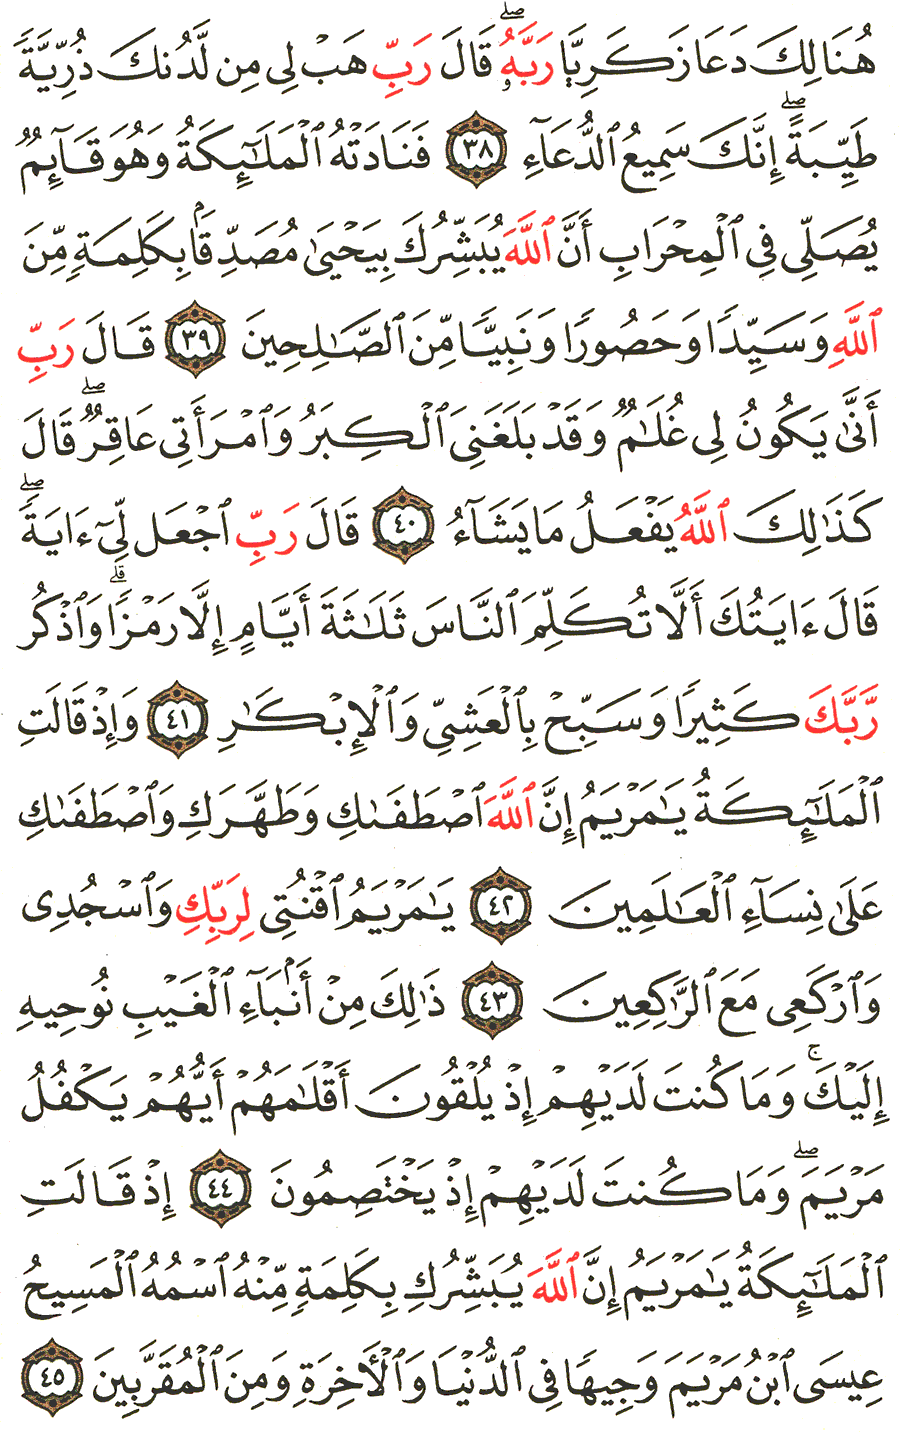 هُنَالِكَ دَعَا زَكَرِيَّا رَبَّهُۥۖ قَالَ رَبِّ هَبْ لِى مِن لَّدُنكَ ذُرِّيَّةً
طَيِّبَةًۖ إِنَّكَ سَمِيعُ ٱلدُّعَآءِ ٣٨ فَنَادَتْهُ ٱلْمَلَٰٓئِكَةُ وَهُوَ قَآئِمٌ
يُصَلِّى فِى ٱلْمِحْرَابِ أَنَّ ٱللَّهَ يُبَشِّرُكَ بِيَحْيَىٰ مُصَدِّقًۢا بِكَلِمَةٍ مِّنَ
ٱللَّهِ وَسَيِّدًا وَحَصُورًا وَنَبِيًّا مِّنَ ٱلصَّٰلِحِينَ ٣٩ قَالَ رَبِّ
أَنَّىٰ يَكُونُ لِى غُلَٰمٌ وَقَدْ بَلَغَنِىَ ٱلْكِبَرُ وَٱمْرَأَتِى عَاقِرٌۖ قَالَ
كَذَٰلِكَ ٱللَّهُ يَفْعَلُ مَا يَشَآءُ ٤٠ قَالَ رَبِّ ٱجْعَل لِّىٓ ءَايَةًۖ
قَالَ ءَايَتُكَ أَلَّا تُكَلِّمَ ٱلنَّاسَ ثَلَٰثَةَ أَيَّامٍ إِلَّا رَمْزًاۗ وَٱذْكُر
رَّبَّكَ كَثِيرًا وَسَبِّحْ بِٱلْعَشِىِّ وَٱلْإِبْكَٰرِ ٤١ وَإِذْ قَالَتِ
ٱلْمَلَٰٓئِكَةُ يَٰمَرْيَمُ إِنَّ ٱللَّهَ ٱصْطَفَىٰكِ وَطَهَّرَكِ وَٱصْطَفَىٰكِ
عَلَىٰ نِسَآءِ ٱلْعَٰلَمِينَ ٤٢ يَٰمَرْيَمُ ٱقْنُتِى لِرَبِّكِ وَٱسْجُدِى
وَٱرْكَعِى مَعَ ٱلرَّٰكِعِينَ ٤٣ ذَٰلِكَ مِنْ أَنۢبَآءِ ٱلْغَيْبِ نُوحِيهِ
إِلَيْكَۚ وَمَا كُنتَ لَدَيْهِمْ إِذْ يُلْقُونَ أَقْلَٰمَهُمْ أَيُّهُمْ يَكْفُلُ
مَرْيَمَۖ وَمَا كُنتَ لَدَيْهِمْ إِذْ يَخْتَصِمُونَ ٤٤ إِذْ قَالَتِ
ٱلْمَلَٰٓئِكَةُ يَٰمَرْيَمُ إِنَّ ٱللَّهَ يُبَشِّرُكِ بِكَلِمَةٍ مِّنْهُ ٱسْمُهُ ٱلْمَسِيحُ
عِيسَى ٱبْنُ مَرْيَمَ وَجِيهًا فِى ٱلدُّنْيَا وَٱلْأَخِرَةِ وَمِنَ ٱلْمُقَرَّبِينَ ٤٥